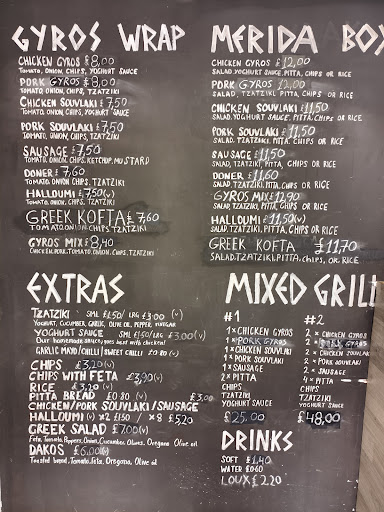 GYROS WRAP
CHICKEN GYROS £8,00
TOMATO, ONION, CHIPS, YOGHURT SAUCE
PORK GYROS £8,00
TOMATO, ONION, CHIPS, TZATZIKI
CHICKEN SOUVLAKI £7,50
TOMATO, ONION, CHIPS, YOGHURT SAUCE
PORK SOUVLAKI £7,50
TOMATO, ONION, CHIPS, TZATZIKI
SAUSAGE £7,50
TOMATO, ONION, CHIPS, KETCHUP, MUSTARD
DONER £7,60
TOMATO, ONION, CHIPS, TZATZIKI
HALLOUMI £7,50(V)
TOMATO, ONION, CHIPS, TZATZIKI
GREEK KOFTA £7,60
TOMATO ONION CHIPS TZATZIKI
GYROS MIX £8,40
CHICKEN, PORK, TOMATO, ONION, CHIPS, TZATZIKI
MERIDA BOX
CHICKEN GYROS £12,00
SALAD, YOGHURT SAUCE, PITTA, CHIPS OR RICE
PORK GYROS £12,00
SALAD, TZATZIKI, PITTA, CHIPS OR RICE
CHICKEN SOUVLAKI £11,50
SALAD, YOGHURT SAUCE, PITTA, CHIPS OR RICE
PORK SOUVLAKI £11,50
SALAD, TZATZIKI, PITTA, CHIPS OR RICE
SAUSAGE £11,50
SALAD, TZATZIKI, PITTA, CHIPS OR RICE
DONER £11,60
SALAD, TZATZIKI, PITTA, CHIPS OR RICE
GYROS MIX £12,90
SALAD, TZATZIKI, PITTA, CHIPS OR RICE
HALLOUMI £11,50(V)
SALAD, TZATZIKI, PITTA, CHIPS OR RICE
GREEK KOFTA £11,70
SALAD,TZATZIKI,PITTA,CHIPS, OR RICE
EXTRAS
TZATZIKI SML £1,50 / LRG £3,00 (V)
YOGHURT, CUCUMBER, GARLIC, OLIVE OIL, PEPPER, VINEGAR
YOGHURT SAUCE SML £1,50 / LRG £3,00 (V)
Our homemade sauce, goes best with chicken!
GARLIC MAYO / CHILLI / SWEET CHILLI £0.80 (V)
CHIPS £3,20 (V)
CHIPS WITH FETA £3,90(V)
RICE £3,20 (V)
PITTA BREAD £0.80 (V)
CHICKEN/PORK SOUVLAKI/SAUSAGE £3,00
HALLOUMI (V) x2 £1.50 / x8 £5,20
GREEK SALAD £7,00(V)
Feta, Tomato, Peppers, Onion, Cucumber, Olives, Oregano, Olive oil
DAKOS £6,00(V)
Toasted bread, Tomato, Feta, Oregano, Olive oil
MIXED GRILL
#1
1 x CHICKEN GYROS
1 x PORK GYROS
1 x CHICKEN SOUVLAKI
1 x PORK SOUVLAKI
1 x SAUSAGE
2 x PITTA
CHIPS
TZATZIKI
YOGHURT SAUCE
£25,00
#2
2 x CHICKEN GYROS
2 x PORK GYROS
2 x CHICKEN SOUVLAKI
2 x PORK SOUVLAKI
2 x SAUSAGE
4 x PITTA
CHIPS
TZATZIKI
YOGHURT SAUCE
£48,00
DRINKS
SOFT £1,40
WATER £0.60
LOUX £2.20